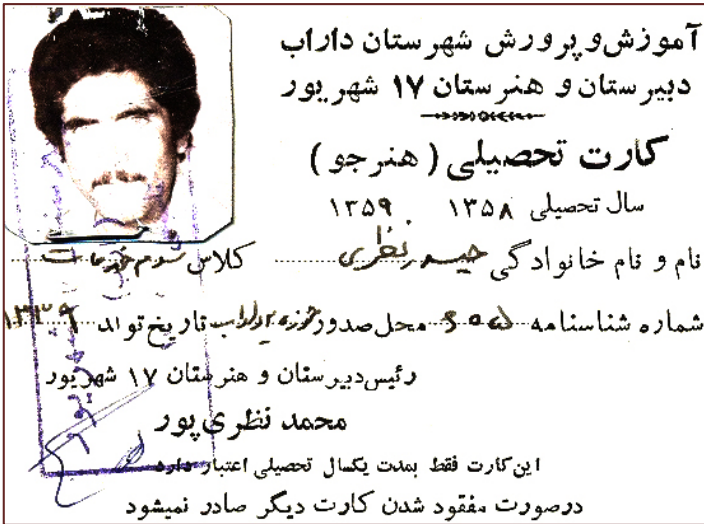 آموزش و پرورش شهرستان داراب
دبیرستان و هنرستان ۱۷ شهریور
کارت تحصیلی ( هنرجو )
سال تحصیلی ۱۳۵۸ ۱۳۵۹
نام و نام خانوادگی حیدر نظری کلاس سوم خدمات
شماره شناسنامه محل صدور داراب تاریخ تولد ۱۳۳۹
رئیس دبیرستان و هنرستان ۱۷ شهریور
محمد نظری پور
این کارت فقط بمدت یکسال تحصیلی اعتبار دارد
درصورت مفقود شدن کارت دیگر صادر نمیشود